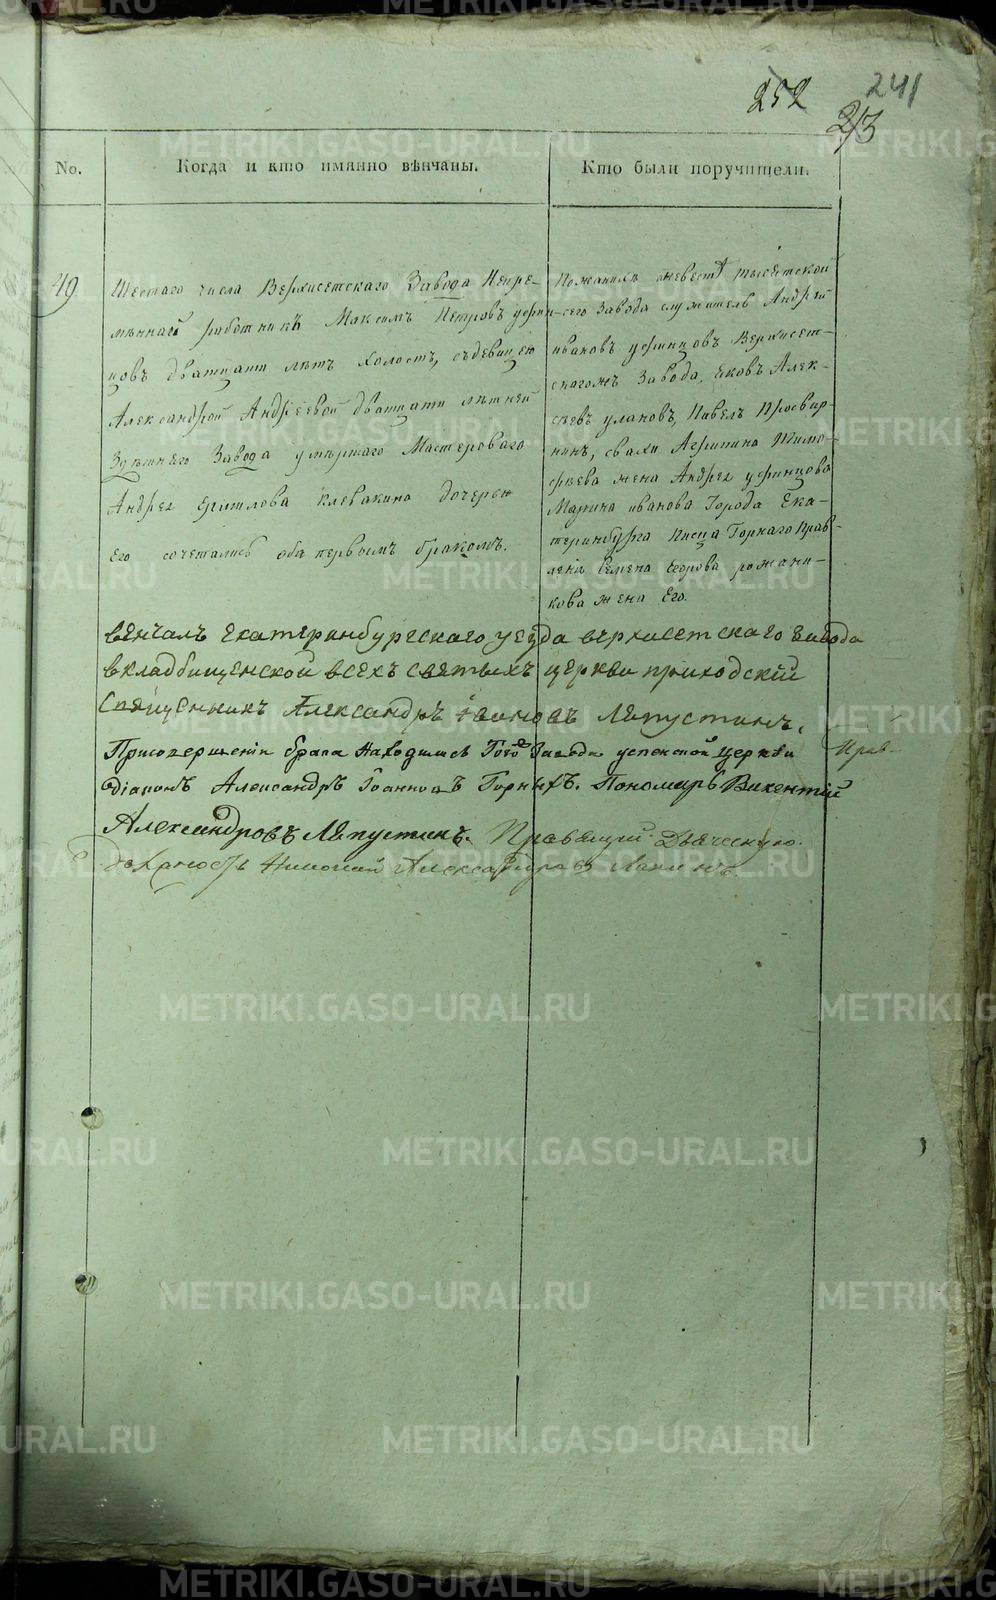 252
241
213
No.
Когда и кто имянно вѣнчаны.
Кто были поручители.
49
Шестаго числа Верхисетскаго Завода Непре-
мѣннаго работникъ Максимъ Петровъ уфин-
цовъ дватцати лѣтъ холостъ, съ девицею
Александрой Андреевой дватцати лѣтней
Здѣшнего Завода умѣршаго Мастероваго
Андрея Клевакина дочерью
Его сочетались оба первымъ бракомъ.
Пожанихѣ иневестѣ
сего Завода служитель Андрей
ивановъ уфинцовъ Верхисет-
скагожъ Завода, Яковъ Алек-
сѣевъ улановъ, Павелъ Просвир-
нинъ, свахи Агрипина Тимо-
фѣева жена Андрея уфинцова
Марина иванова Города Ека-
теринбурга Писца Горнаго Прав-
ленія Семена Федорова рожани-
кова жена Его.
вѣнчалъ Екатеринбургскаго уезда верхисетскаго завода
вкладбищенской всехъ святыхъ церкви приходскій
Священникъ Александръ Ивановъ Ляпустинъ.
Присовершеніи брака Находились Того Завода успенской Церкви
Діаконъ Александръ Іоанновъ Горныхъ. Пономарь Викентій
Александровъ Ляпустинъ. Правящій Дьяческую
Прав-
должность Николай Александровъ
METRIKI.GASO-URAL.RU